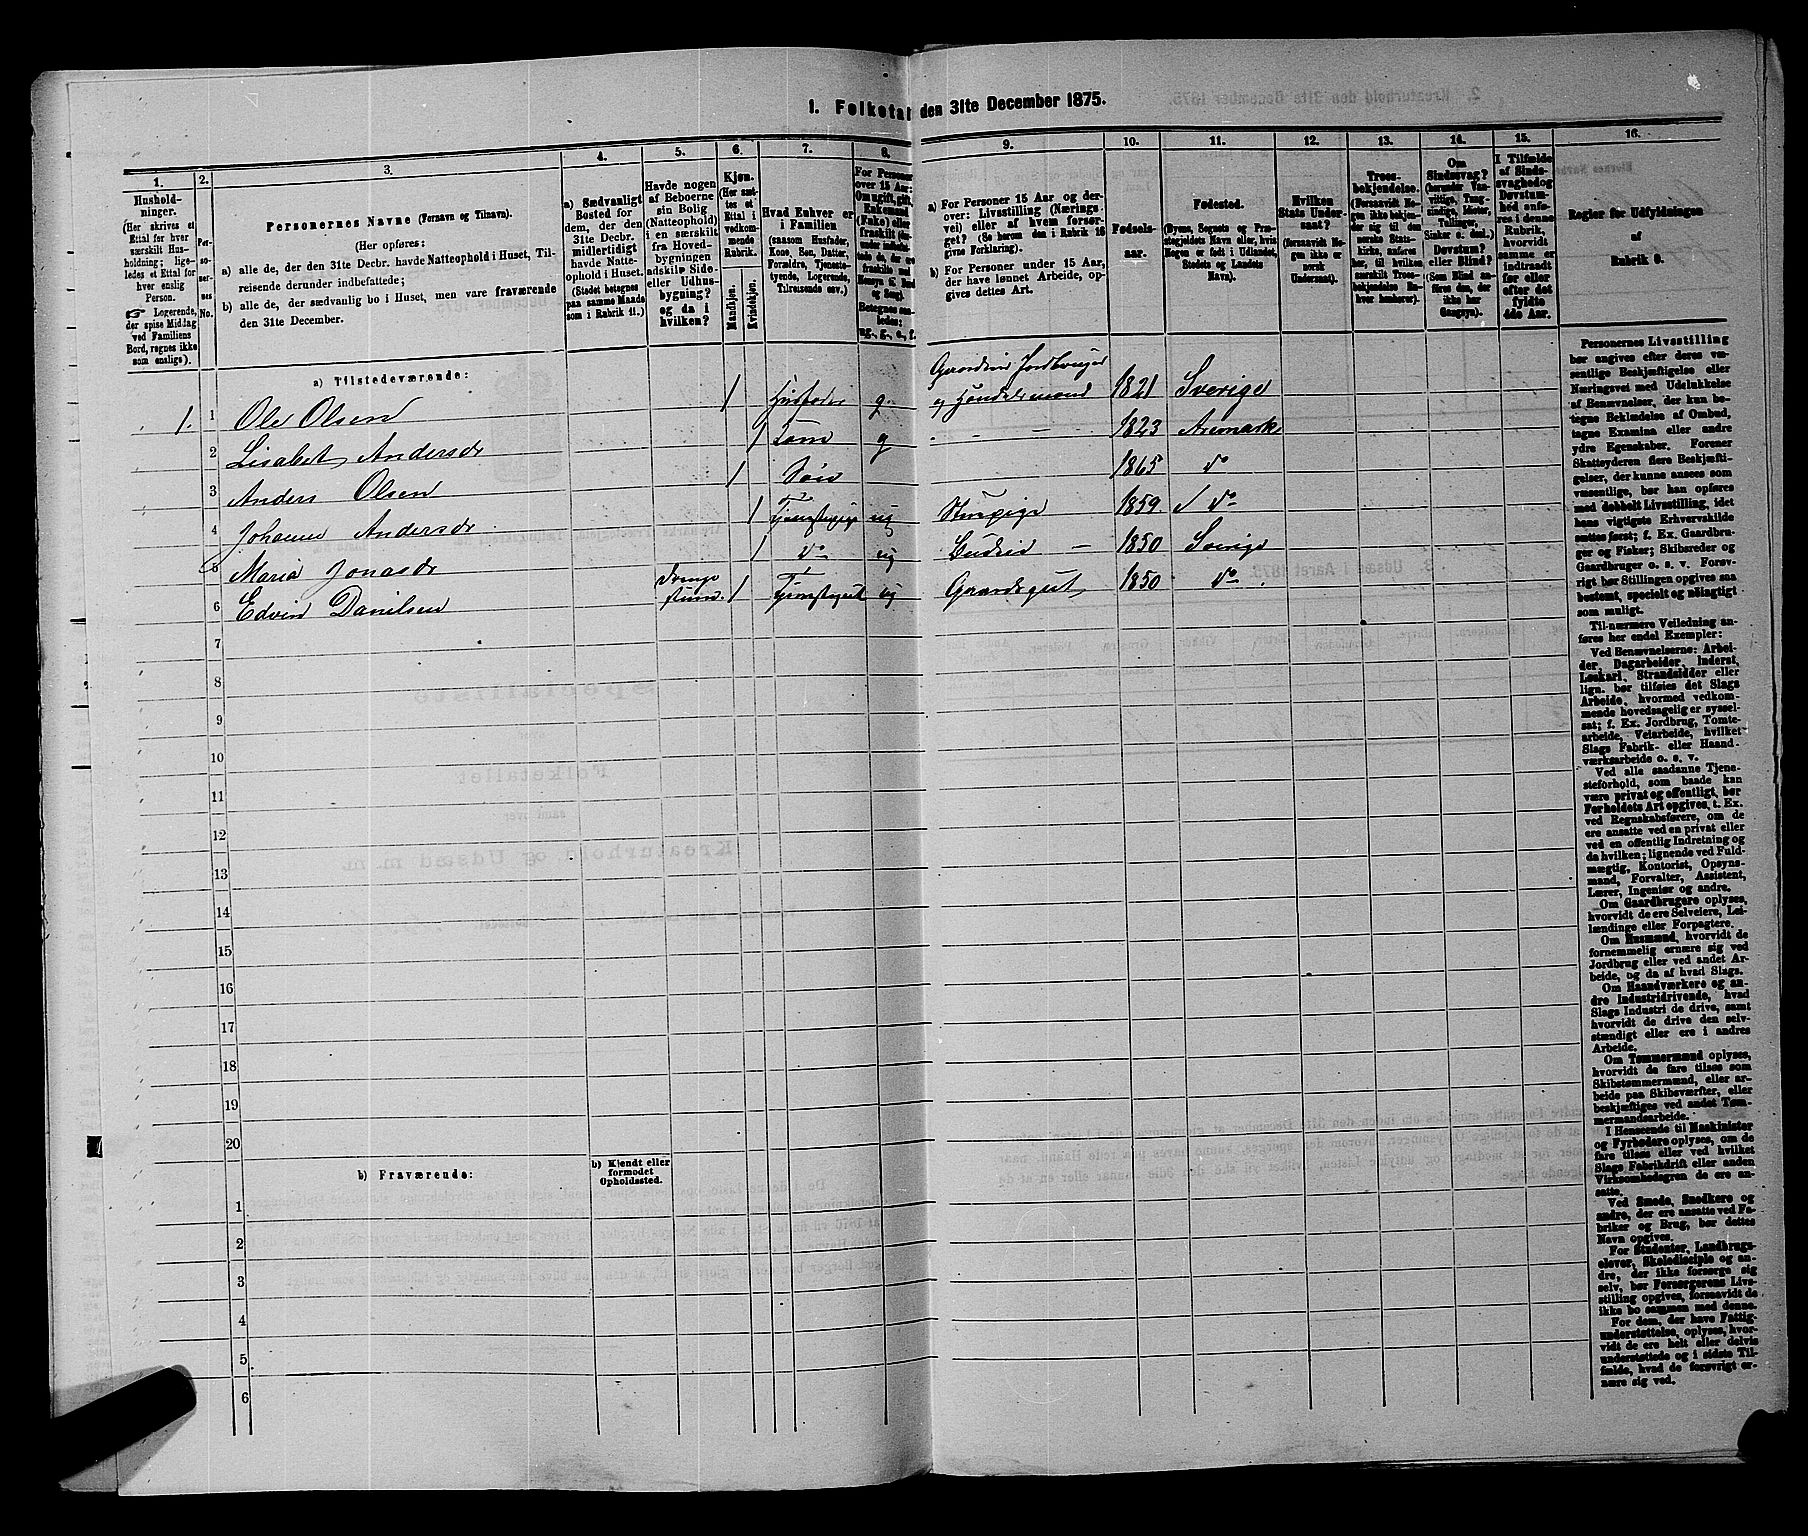 1. Folketal den 31te December 1875.
1.
Hushold-
ninger.
(Her skrives et
Ettal for hver
særskilt Hus-
holdning; lige-
ledes et Ettal for
hver enslig
Person.
☞ Logerende,
der spise Middag
ved Familiens
Bord, regnes ikke
som enslige).
2.
Per-
so-
ner-
nes
No.
3.
Personernes Navne (Fornavn og Tilnavn).
(Her opføres:
a) alle de, der den 31te Decbr. havde Natteophold i Huset, Til-
reisende derunder indbefattede;
b) alle de, der sædvanlig bo i Huset, men vare fraværende
den 31te December.
4.
a) Sædvanligt
Bosted for
dem, der den
31te Decbr.
Midlertidigt
havde Natte-
ophold i Huset.
(Stedet betegnes
paa samme Maade
som i Rubrik 11.)
5.
Havde nogen
af Beboerne
sin Bolig
(Natteophold)
i en særskilt
fra Hoved-
bygningen
adskilt Side-
eller Udhus-
bygning?
og da i
hvilken?
6.
Kjøn.
(Her sæt-
tes et
Ettal i
vedkom-
mende
Rubrik.
Mandkjøn.
Kvindekjøn.
7.
Hvad Enhver er
i Familien
(saasom Husfader,
Kone, Søn, Datter,
Forældre, Tjeneste-
tyende, Logerende,
Tilreisende osv.)
8.
For Personer
over 15 Aar:
Om ugift, gift,
Enkemand
(Enke) eller
fraskilt
9.
a) For Personer 15 Aar og der-
over: Livsstilling (Nærings-
vei) eller af hvem forsør-
get? (Se herom den i Rubrik 16
givne Forklaring).
b) For Personer under 15 Aar,
der have lønnet Arbeide, op-
gives dettes Art.
10.
Fødsels-
aar.
11.
Fødested.
(Byens, Sognets og Præ-
stegjeldets Navn eller, hvis
Nogen er født i Udlandet,
Stedets og Landets
Navn).
12.
Hvilken
Stats Under-
saat?
(forsaavidt No-
gen ikke er
norsk
Undersaat).
13.
Troes-
bekjendelse.
(Forsaavidt No-
gen ikke bekjen-
der sig til den
norske Stats-
kirke, anføres
her, til hvilken
særskilt Troes-
bekjendelse En-
hver henhører).
14.
Om
Sindssvag?
(herunder Van-
vittige, Tung-
sindige, Idioter,
Tullinger,
Sinker o. desl.)
Døvstum?
eller Blind?
(Som Blind an-
føres den, der
ikke har
Gangsyn).
15.
I Tilfælde
af Sinds-
svaghed og
Døvstum-
hed anfø-
res i denne
Rubrik,
hvorvidt
samme er
indtraadt
før eller
efter det
fyldte
4de Aar.
16.
Regler for Udfyldningen
af
Rubrik 9.
a) Tilstedeværende:
Gaardeier Jordbruger
1. 1 Ole Olsen 1 Husfader g. og Handelsmand 1821 Sverige
2 Lisabet Andersdr 1 Kone g - - - 1823 Aremark
3 Anders Olsen 1 Søn 1865 do
4 Johanne Andersdr 1 Tjenestepige ug Stuepige 1859 do
5 Maria Jonasdr 1 do ug Budeie - 1850 Sverige
6 Edvin Danilsen Drenge stuen. 1 Tjenstegut ug Gaardsgut 1850 do
7
8
9
10
11
12
13
14
15
16
17
18
19
20
b) Fraværende:
b) Kjendt eller
formodet
Opholdssted.
1
2
3
4
5
6
Personernes Livsstilling
bør angives efter deres væ-
sentlige Beskjæftigelse eller
Næringsvei med Udelukkelse
af Benævnelser, der kun be-
tegne Beklædelse af Ombud,
tagne Examina eller andre
ydre Egenskaber. Forener
Skatteyderen flere Beskjæfti-
gelser, der kunne ansees som
væsentlige, bør han opføres
med dobbelt Livsstilling, idet
hans vigtigste Erhvervskilde
sættes først; f. Ex. Gaardbru-
ger og Fisker; Skibsreder og
Gaardbruger o. s. v. Forøv-
rigt bør Stillingen opgives saa
bestemt, specielt og nøiagtigt
som muligt.
Til nærmere Veiledning an-
føres her endel Exempler:
Ved Benævnelserne: Arbei-
der, Dagarbeider, Inderst,
Løskarl, Strandsidder eller
lign. bør tilføies det Slags
Arbeide, hvormed vedkom-
mende hovedsagelig er syssel-
sat; f. Ex. Jordbrug, Tomte-
arbeide, Veiarbeide, hvilket
Slags Fabrik- eller Haand-
værksarbeide o. s. v.
Ved alle saadanne Tjene-
steforhold, som baade kan
være privat og offentligt, bør
Forholdets Art opgives, t. Ex.
ved Regnskabsførere, om de
ere ansatte ved en privat eller
ved en offentlig Indretning og
da hvilken; lignende ved Fuld-
mægtig, Kontorist, Opsyns-
mand, Forvalter, Assistent,
Lærer, Ingeniør og andre.
Om Gaardbrugere oplyses,
hvorvidt de ere Selveiere, Lei-
lændinge eller Forpagtere.
Om Husmænd, hvorvidt de
fornemmelig ernære sig ved
Jordbrug eller ved andet Ar-
beide, og da af hvad Slags.
Om Haandværkere og an-
dre Industridrivende, hvad
Slags Industri de drive, samt
hvorvidt de drive den selv-
stændigt eller ere i andres
Arbeide.
Om Tømmermænd oplyses,
hvorvidt de fare tilsøs som
Skibstømmermænd, eller ar-
beide paa Skibsværfter, eller
beskjæftiges ved andet Tøm-
mermandsarbeide.
I Henseende til Maskinister
og Fyrbødere oplyses, om de
fare tilsøs eller ved hvilket
Slags Fabrikdrift eller anden
Virksomhedsgren de ere an-
satte.
Ved Smede, Snedkere og
andre, der ere ansatte ved Fa-
briker og Brug, bør dettes
Navn opgives.
For Studenter, Landbrugs-
elever, Skoledisciple og an-
dre, der ikke forsørge sig
selv, bør Forsørgerens Livs-
stilling opgives, forsaavidt de
ikke bo sammen med denne.
For dem, der have Fattig-
understøttelse, oplyses, hvor-
vidt de ere helt eller delvis
understøttede og i sidste Til-
fælde, hvad de forøvrigt er-
nære sig ved.